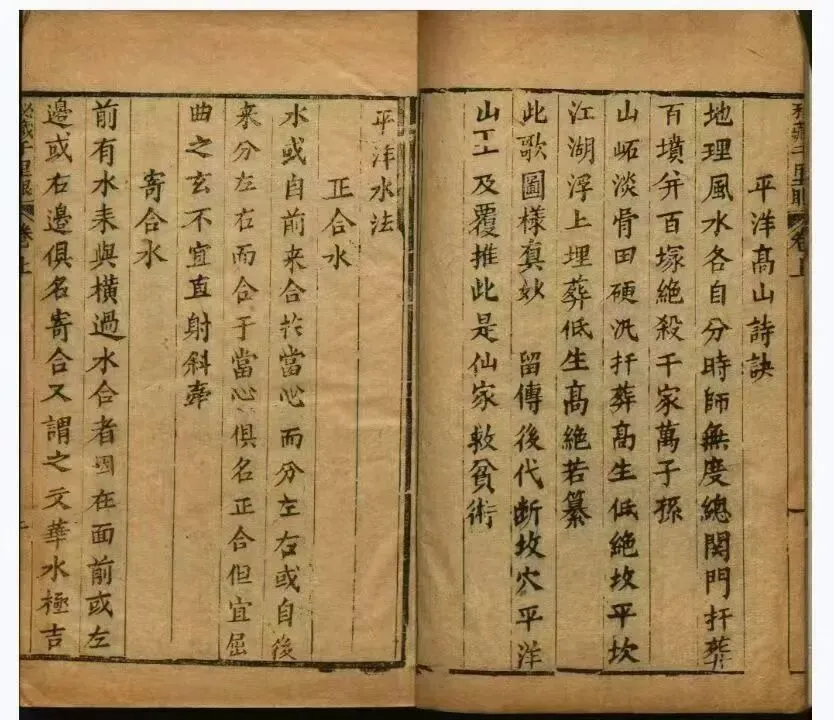 卷上
平洋高山詩訣
地理風水各自分時師無度總関門扦葬
百墳并百塚絕殺千家萬子孫
山岾淡骨田硬汎扦葬高生低絕坟平坎
江湖浮上埋葬低生高絕若纂
此歌圖樣真妙 留傳後代断坟穴平洋
山及覆推此是仙家救貧術
平洋水法
正合水
水或自前来合扵當心而分左右或自後
来分左右而合于當心俱名正合但宜屈
曲之玄不宜直射斜牽
寄合水
前有水来與橫過水合者因在面前或左
邊或右邊俱名寄合又謂之文華水極吉
卷上